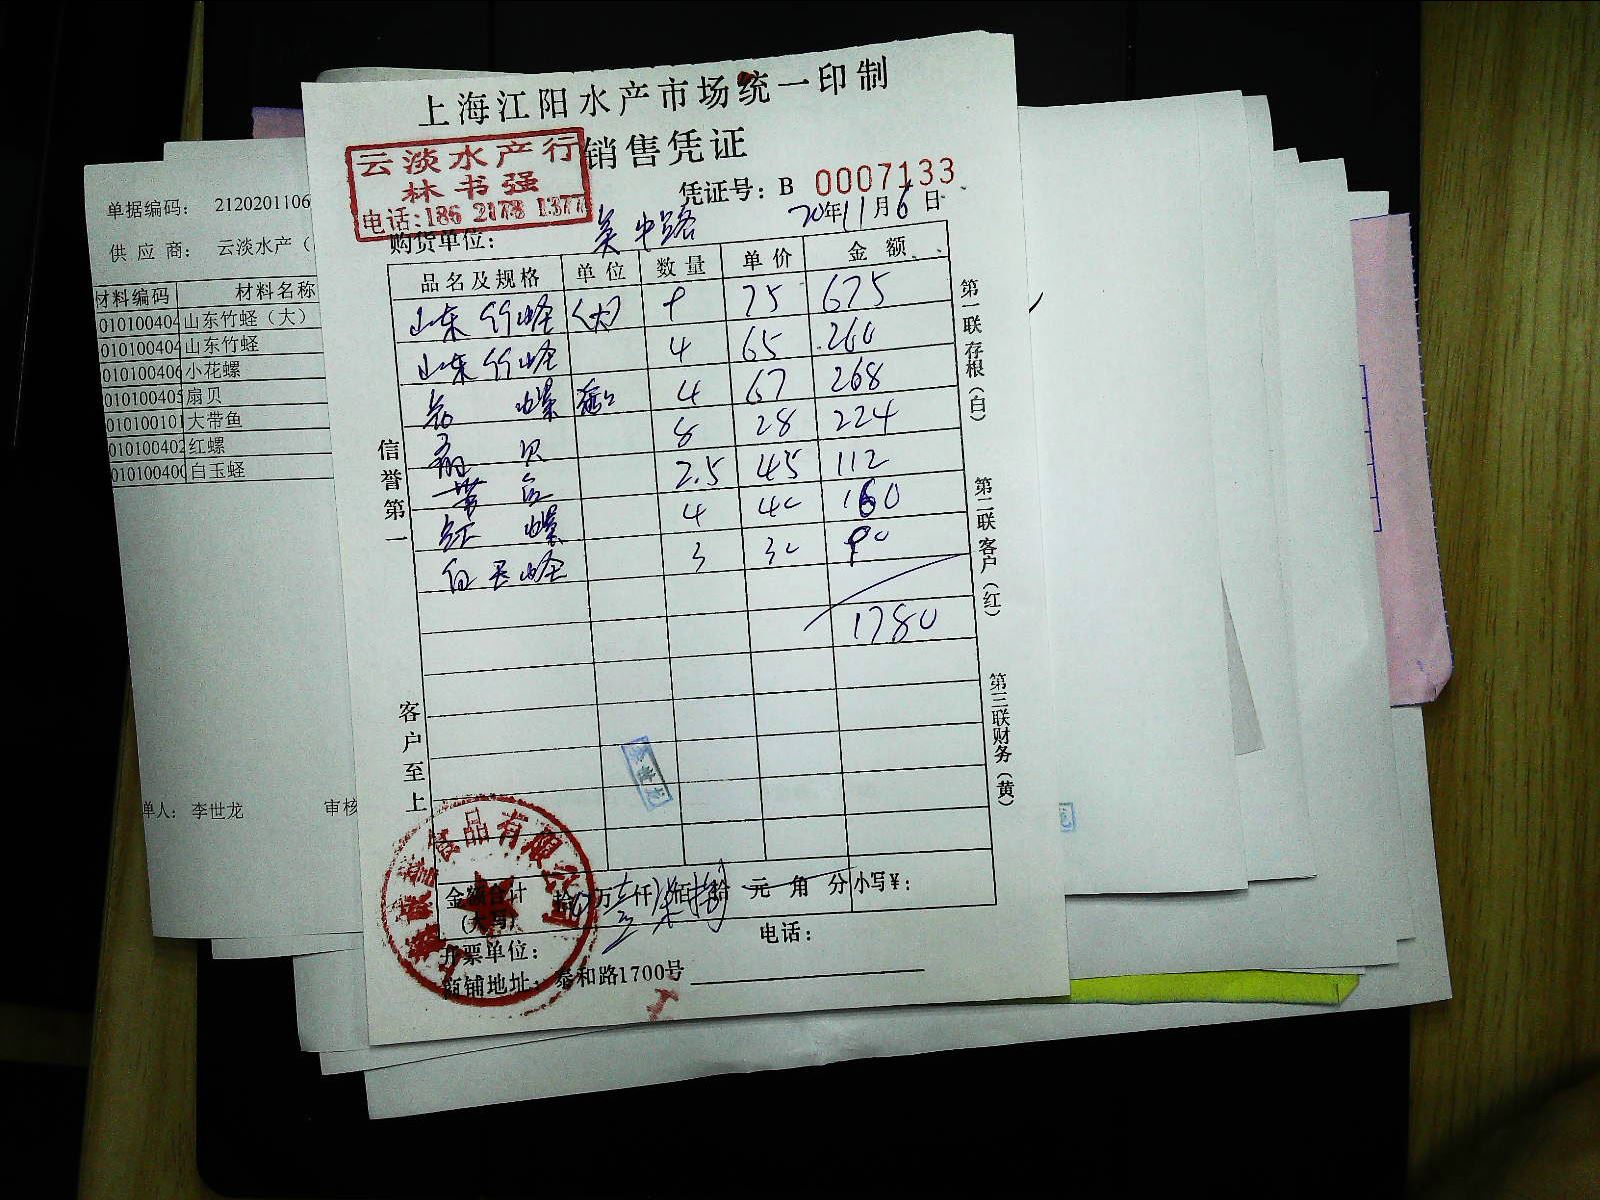 上海江阳水产市场统一印制
销售凭证
云淡水产行
林书强
电话:186 2178 1377
凭证号: B 0007133
购货单位: 吴中路 20年11月6日
品名及规格 单位 数量 单价 金额
山东竹蛏 (大) 9 75 675
山东竹蛏 4 65 260
花螺 4 67 268
扇贝 8 28 224
带鱼 2.5 45 112
红螺 4 40 160
白玉蛏 3 30 90
1780
信誉第一
客户至上
第一联存根(白)
第二联客户(红)
第三联财务(黄)
金额合计 拾 万 壹仟 柒佰 捌拾 元 角 分 小写¥:
(大写)
开票单位: 电话:
商铺地址: 泰和路1700号
食品有限公司
单据编码: 2120201106
供应商: 云淡水产(
材料编码 材料名称
010100404 山东竹蛏(大)
010100404 山东竹蛏
010100406 小花螺
010100405 扇贝
010100101 大带鱼
010100402 红螺
010100400 白玉蛏
单人: 李世龙 审核